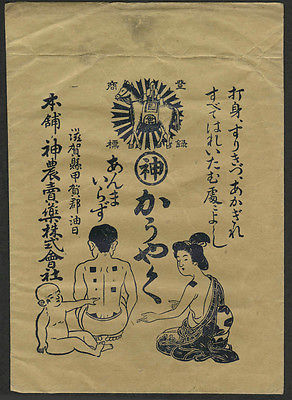 打身、すりきづ、あかぎれ
すべてはれいたむ處によし
登録
商標
神
かうやく
あんま
いらず
滋賀縣甲賀郡油日
本舗・神農賣藥株式會社